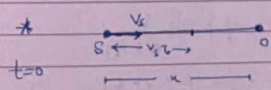 * Vs
S Vs τ O
t=0 x